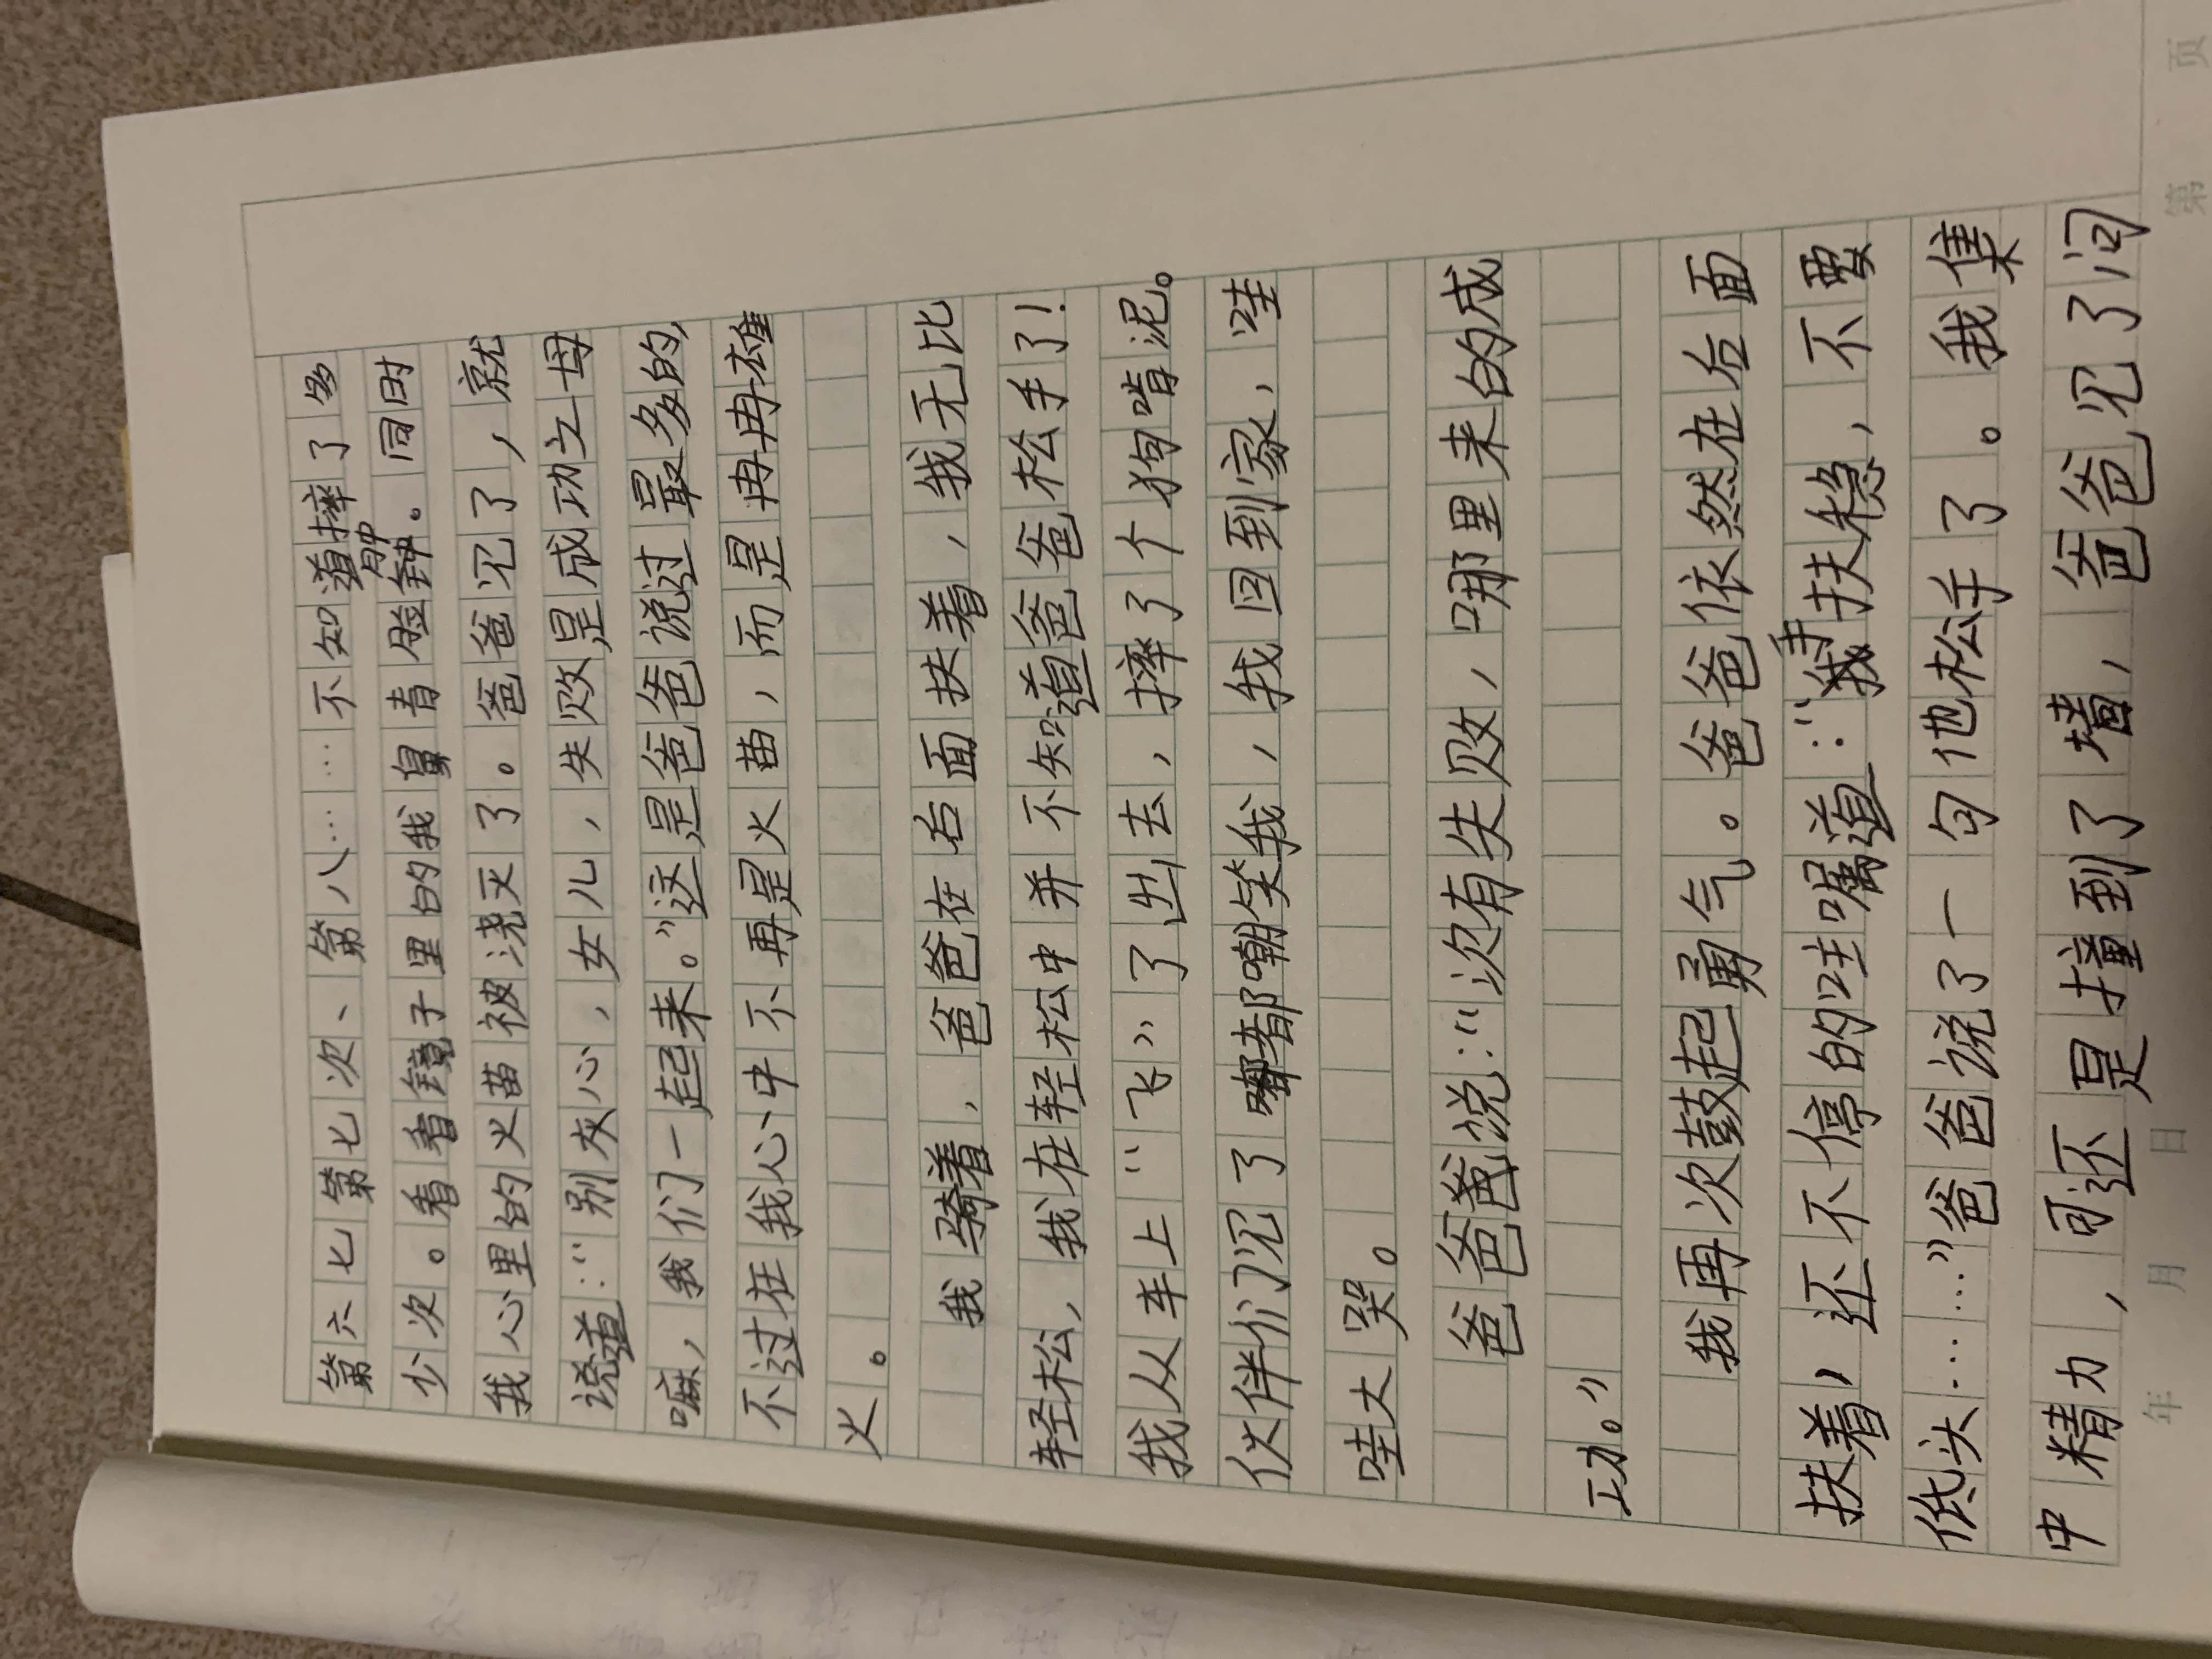 第六七第七次、第八……不知道摔了多
少次。看看镜子里的我鼻青脸肿。同时
我心里的火苗被浇灭了。爸爸见了，就
说道：“别灰心，女儿，失败是成功之母
嘛，我们一起来。”这是爸爸说过最多的，
不过在我心中不再是火苗，而是冉冉雄
火。
我骑着，爸爸在右面扶着，我无比
轻松，我在轻松中并不知道爸爸松手了！
我从车上“飞”了出去，摔了个狗啃泥。
伙伴们见了都嘲笑我，我回到家，哇
哇大哭。
爸爸说：“次有失败，哪里来的成
功。”
我再次鼓起勇气。爸爸依然在后面
扶着，还不停的叮嘱道：“手扶稳，不要
低头……”爸爸说了一句他松手了。我集
中精力，可还是撞到了墙，爸爸见了问
年 月 日 第 页